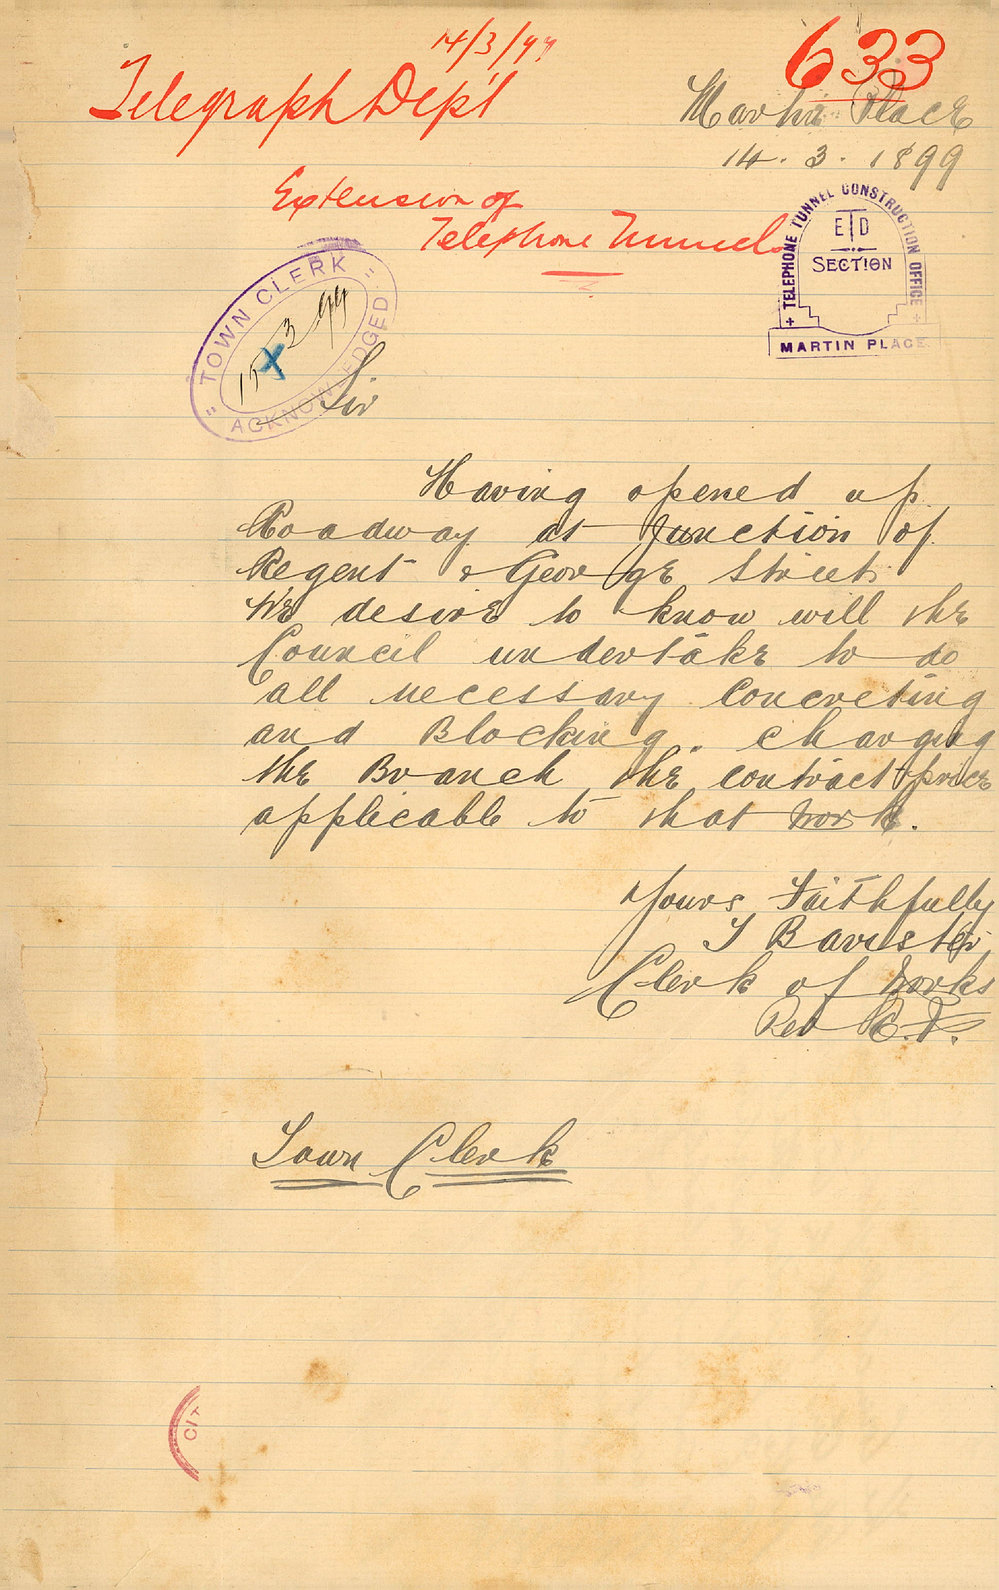 14/3/99
633
Telegraph Dep't
Martin Place
14.3.1899
Extension of
Telephone Tunnel
TELEPHONE TUNNEL CONSTRUCTION OFFICE
ETD
SECTION
MARTIN PLACE
"TOWN CLERK"
15 3 99
ACKNOWLEDGED
Sir
Having opened up
Roadway at Junction of
Regent & George Streets
We desire to know will the
Council undertake to do
all necessary Concreting
and Blocking. Charging
the Branch the contract price
applicable to that work.
Yours Faithfully
T Bavister
Clerk of Works
Town Clerk
CIT